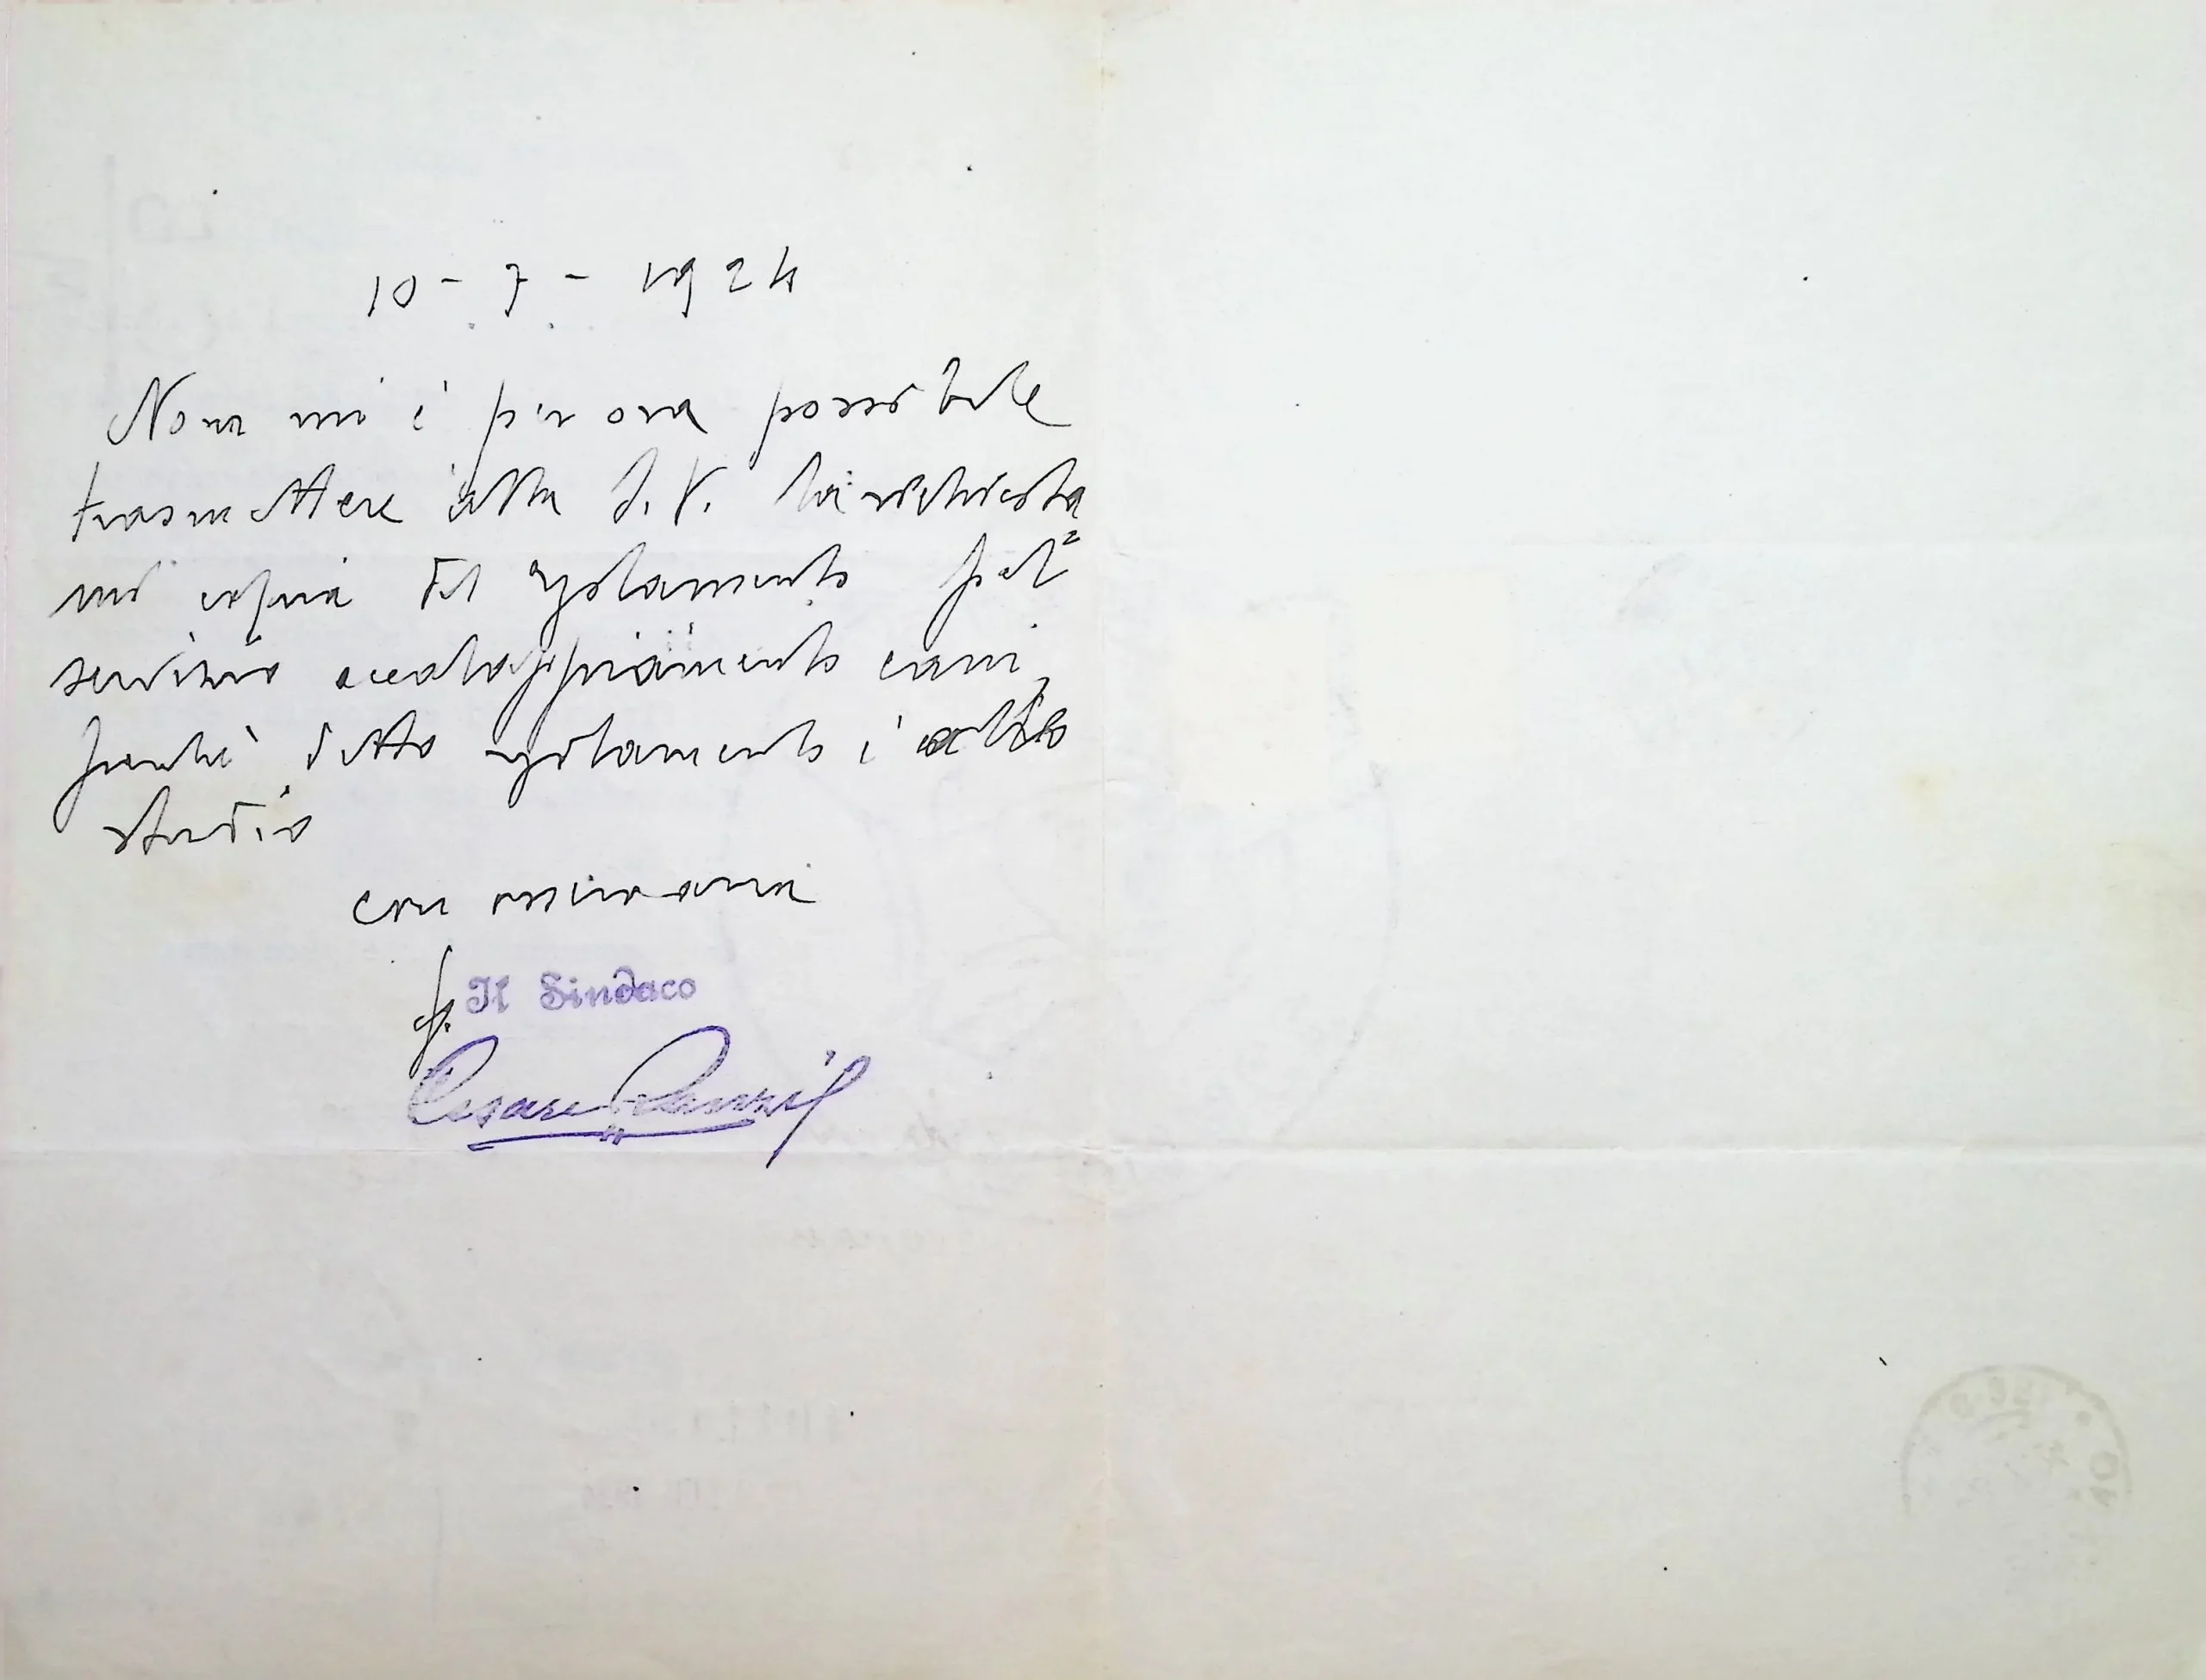 10 - 7 - 1924
Non mi è per ora possibile
trasmettere alla S. V. la richiesta
mi copia del regolamento pel
servizio accalappiamento cani,
perché detto regolamento è allo
studio
con osservanza
p. Il Sindaco
Cesare